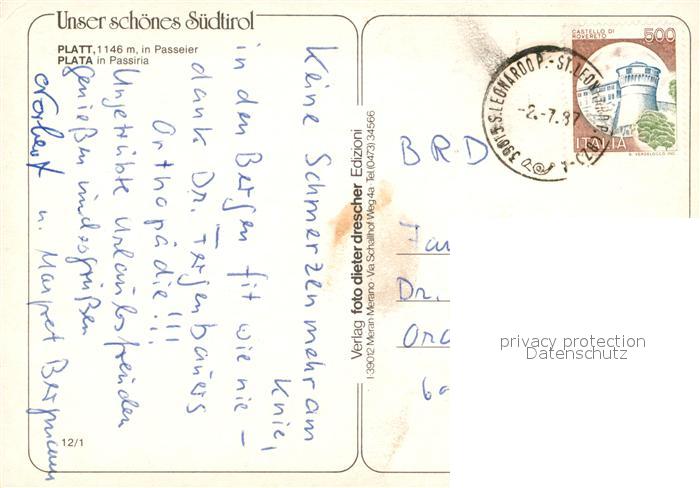 Unser schönes Südtirol
PLATT, 1146 m, in Passeier
PLATA in Passiria
Keine Schmerzen mehr am
Knie,
in den Bergen fit wie nie –
dank Dr. Fergenbauers
Orthopädie!!!
Ungetrübte Urlaubsfreuden
genießen und grüßen
Norbert u. Margret Bergmann
12/1
Verlag foto dieter drescher Edizioni
I-39012 Meran Merano · Via Schallhof Weg 4a · Tel (0473) 34566
CASTELLO DI
ROVERETO
500
ITALIA
39015 S. LEONARDO P. - ST. LEON
-2.-7.87
BRD
Dr.
privacy protection
Datenschutz